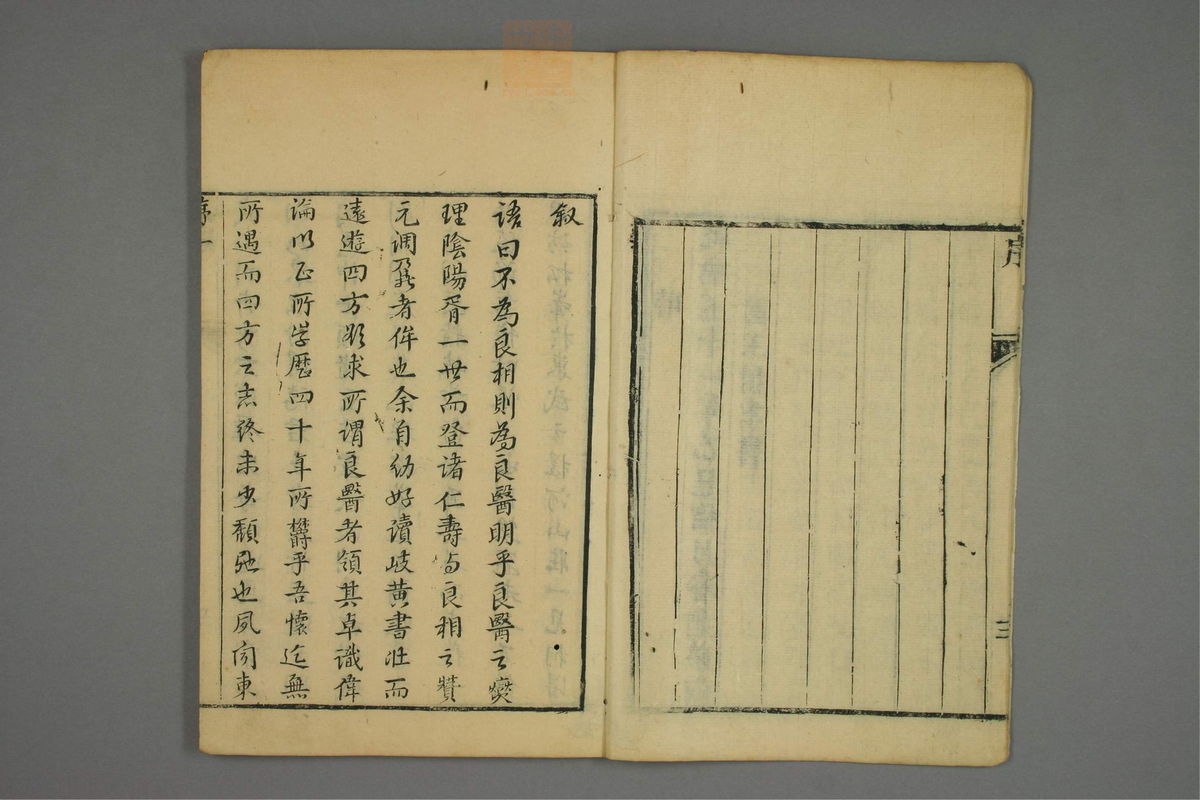 序
三
叙
語曰不為良相則為良醫明乎良醫之燮
理陰陽胥一世而登諸仁壽与良相之贊
元調鼐者侔也余自幼好讀岐黄書壯而
遠遊四方欲求所謂良醫者領其卓識偉
論以正所学歷四十年所欝乎吾懷迄無
所遇而四方之志終未少頹弛也夙闻東
序一